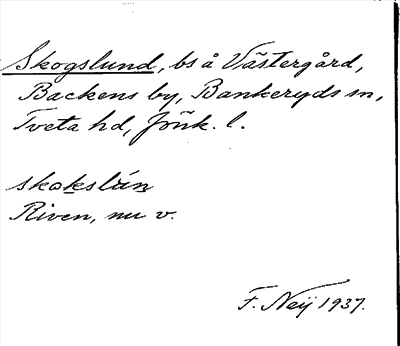 Skogslund, bs å Västergård,
Backens by, Bankeryds sn,
Tveta hd, Jönk. l.
skokslún
Riven, nu v.
F. Neij 1937.